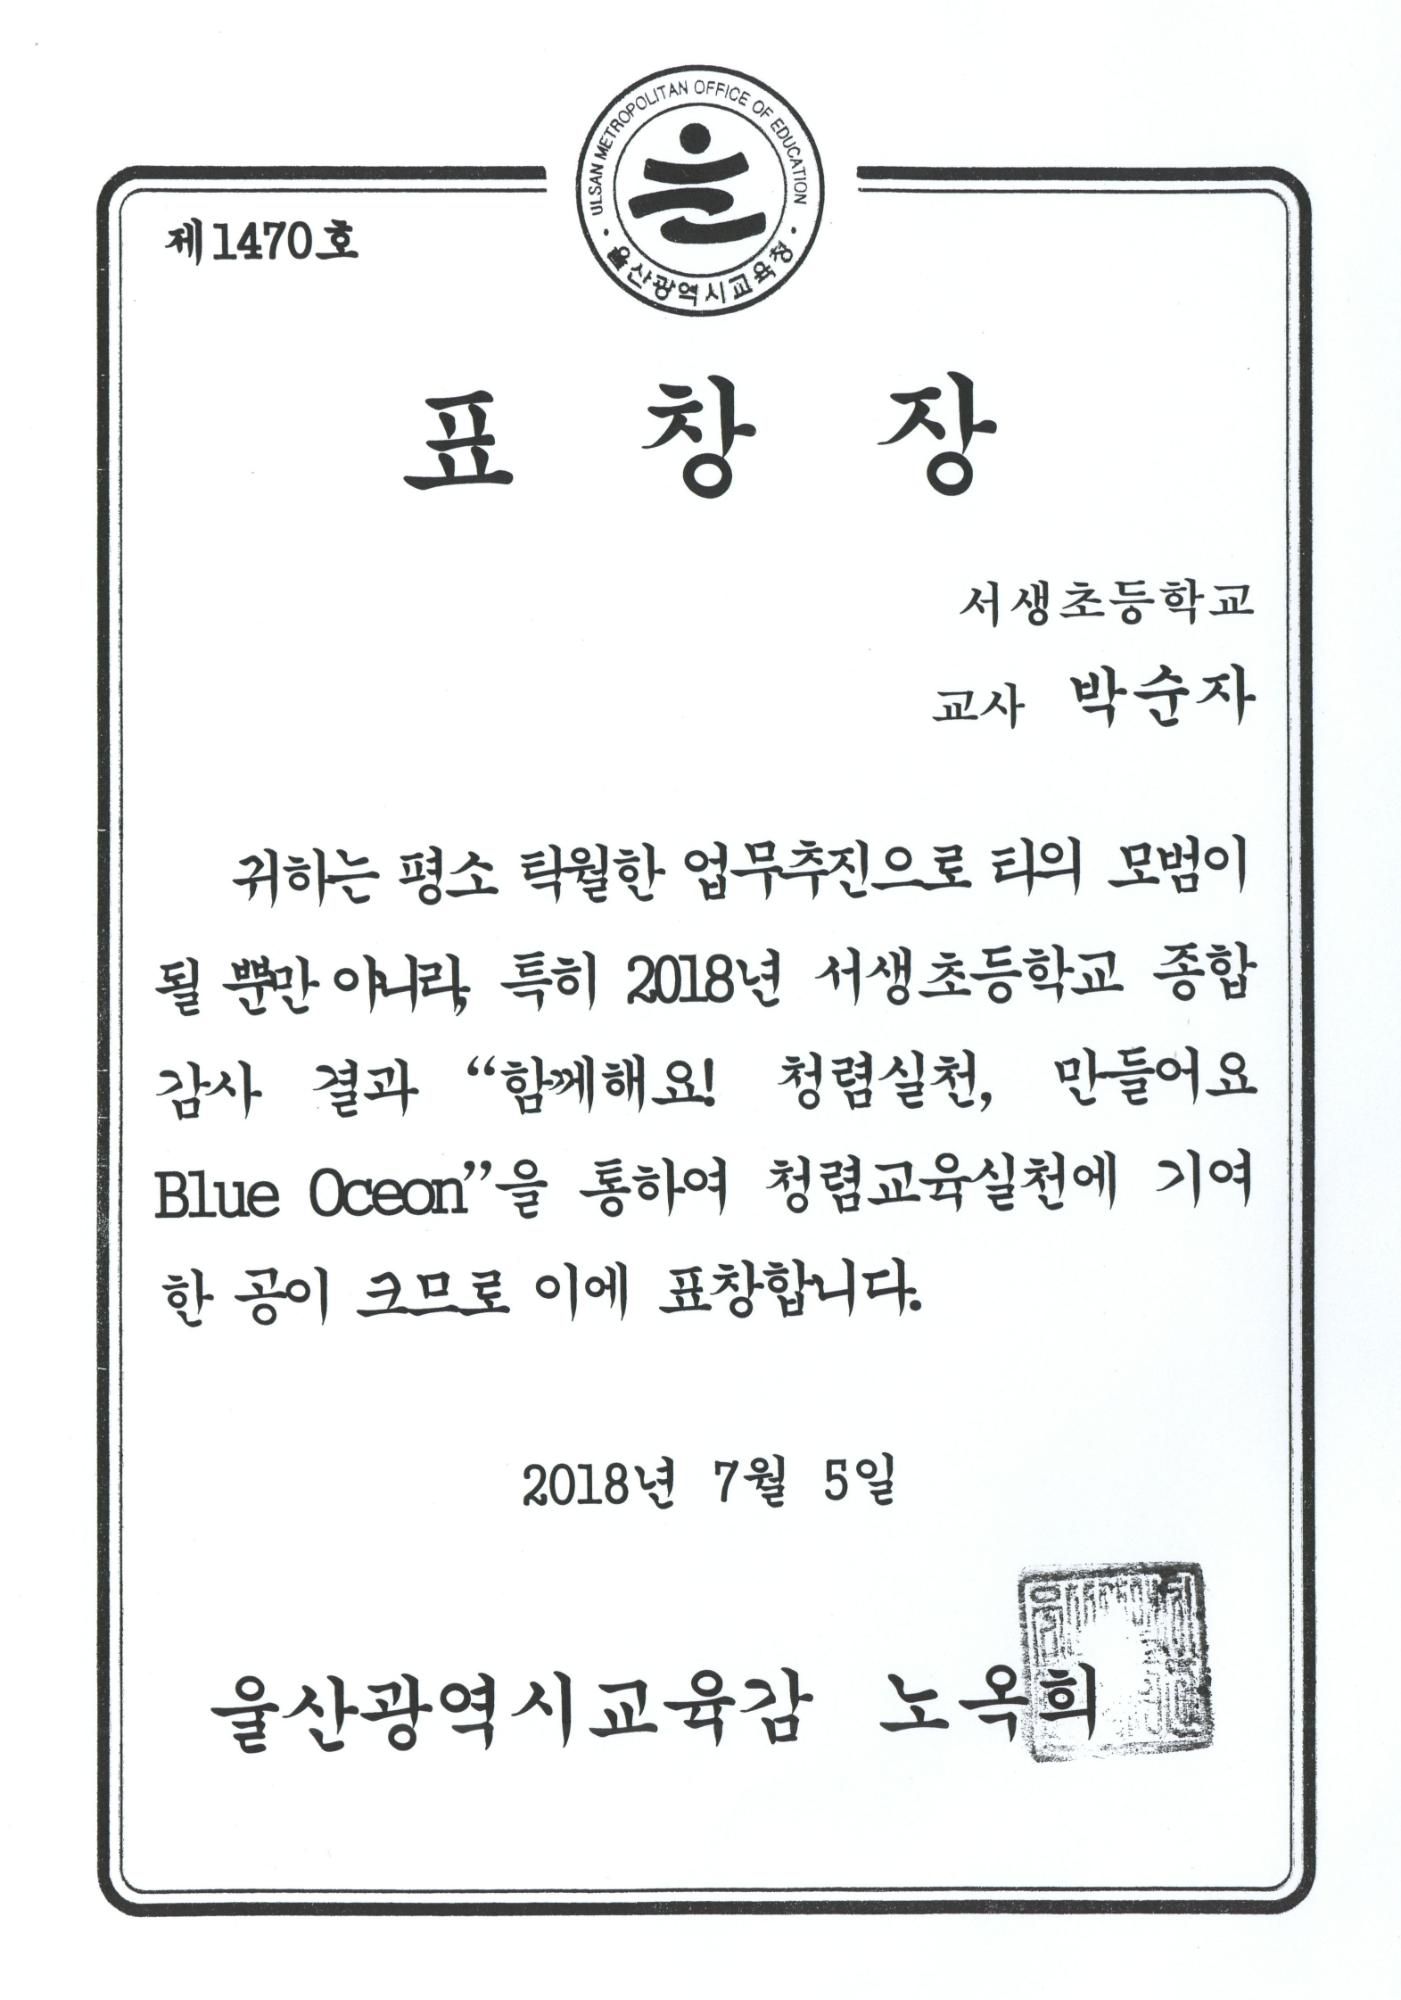 ULSAN METROPOLITAN OFFICE OF EDUCATION
울산광역시교육청
제1470호
표 창 장
서생초등학교
교사 박순자
귀하는 평소 탁월한 업무추진으로 타의 모범이
될 뿐만 아니라, 특히 2018년 서생초등학교 종합
감사 결과 “함께해요! 청렴실천, 만들어요
Blue Oceon”을 통하여 청렴교육실천에 기여
한 공이 크므로 이에 표창합니다.
2018년 7월 5일
울산광역시교육감 노옥희